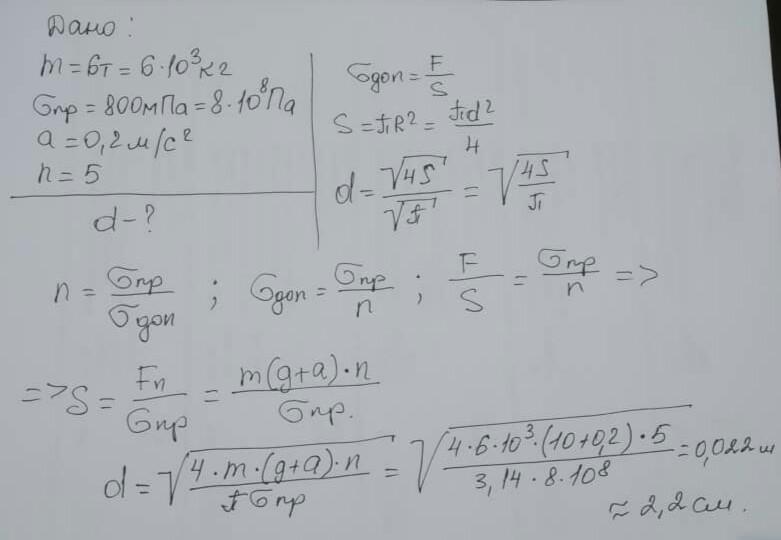 Дано:
m = 6т = 6·10³кг
σпр = 800мПа = 8·10⁸Па
a = 0,2м/с²
n = 5
d – ?
σдоп = F/S
S = πR² = πd²/4
d = √4S/√π = √(4S/π)
n = σпр/σдоп ; σдоп = σпр/n ; F/S = σпр/n =>
=> S = Fn/σпр = m(g+a)·n/σпр.
d = √(4·m·(g+a)·n/πσпр) = √(4·6·10³·(10+0,2)·5/3,14·8·10⁸) = 0,022м
≈ 2,2см.